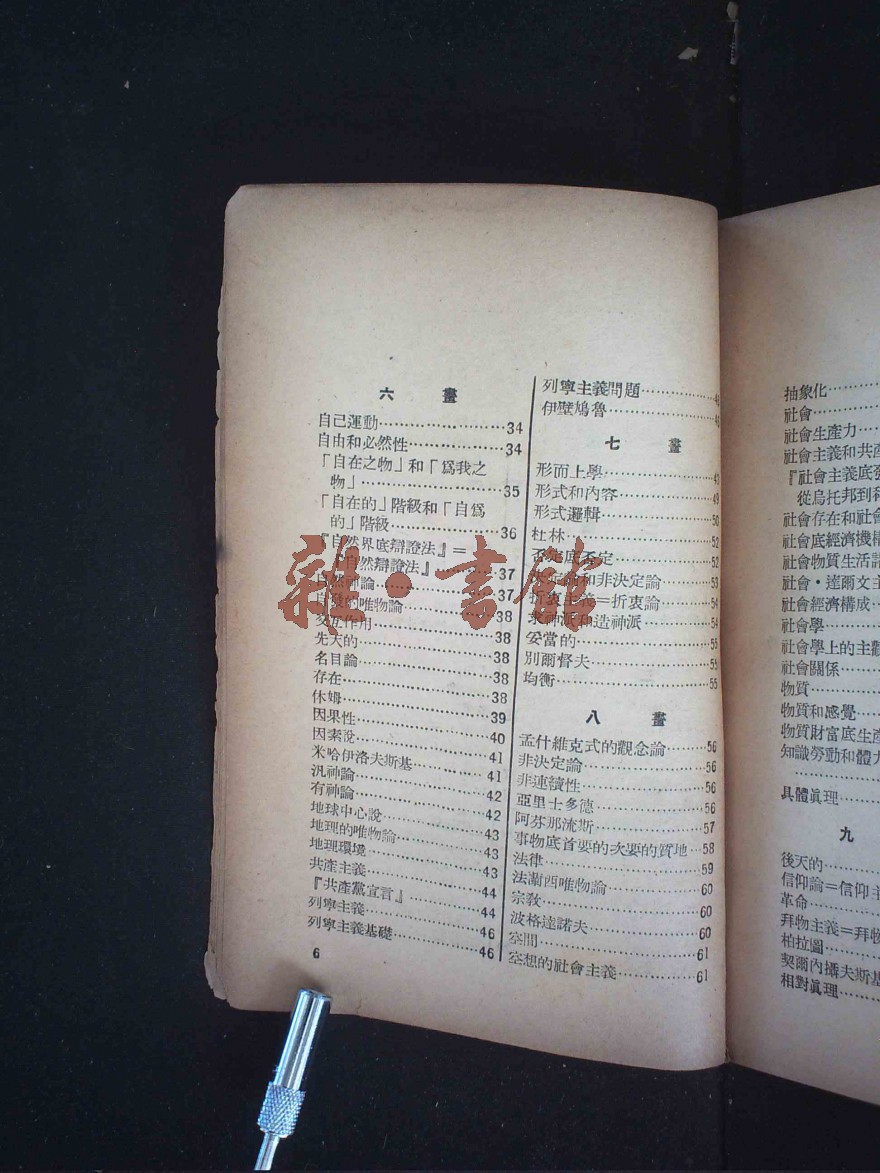 六 畫
自己運動……34
自由和必然性……34
「自在之物」和「爲我之
物」……35
「自在的」階級和「自爲
的」階級……36
『自然界底辯證法』＝
『自然辯證法』……37
自然神論……37
自發的唯物論……38
交互作用……38
先天的……38
名目論……38
存在……38
休姆……39
因果性……40
因素說……41
米哈伊洛夫斯基……41
汎神論……42
有神論……42
地球中心說……43
地理的唯物論……43
地理環境……43
共產主義……44
『共產黨宣言』……44
列寧主義……46
列寧主義基礎……46
6
列寧主義問題……
伊壁鳩魯……
七 畫
形而上學……
形式和內容……49
形式邏輯……50
杜林……52
否定底否定……52
決定論和非決定論……53
折衷主義＝折衷論……54
求神派和造神派……54
妥當的……55
別爾督夫……55
均衡……55
八 畫
孟什維克式的觀念論……56
非決定論……56
非連續性……56
亞里士多德……56
阿芬那流斯……57
事物底首要的次要的質地…58
法律……59
法蘭西唯物論……60
宗敎……60
波格達諾夫……60
空間……61
空想的社會主義……61
抽象化……
社會……
社會生產力……
社會主義和共產
『社會主義底發
從烏托邦到科
社會存在和社會
社會底經濟機構
社會物質生活諸
社會・達爾文主
社會經濟構成…
社會學……
社會學上的主觀
社會關係……
物質……
物質和感覺……
物質財富底生產
知識勞動和體力
……
具體眞理……
九
後天的……
信仰論＝信仰主
革命……
拜物主義＝拜物
柏拉圖……
契爾內攝夫斯基
相對眞理……
雜・書館